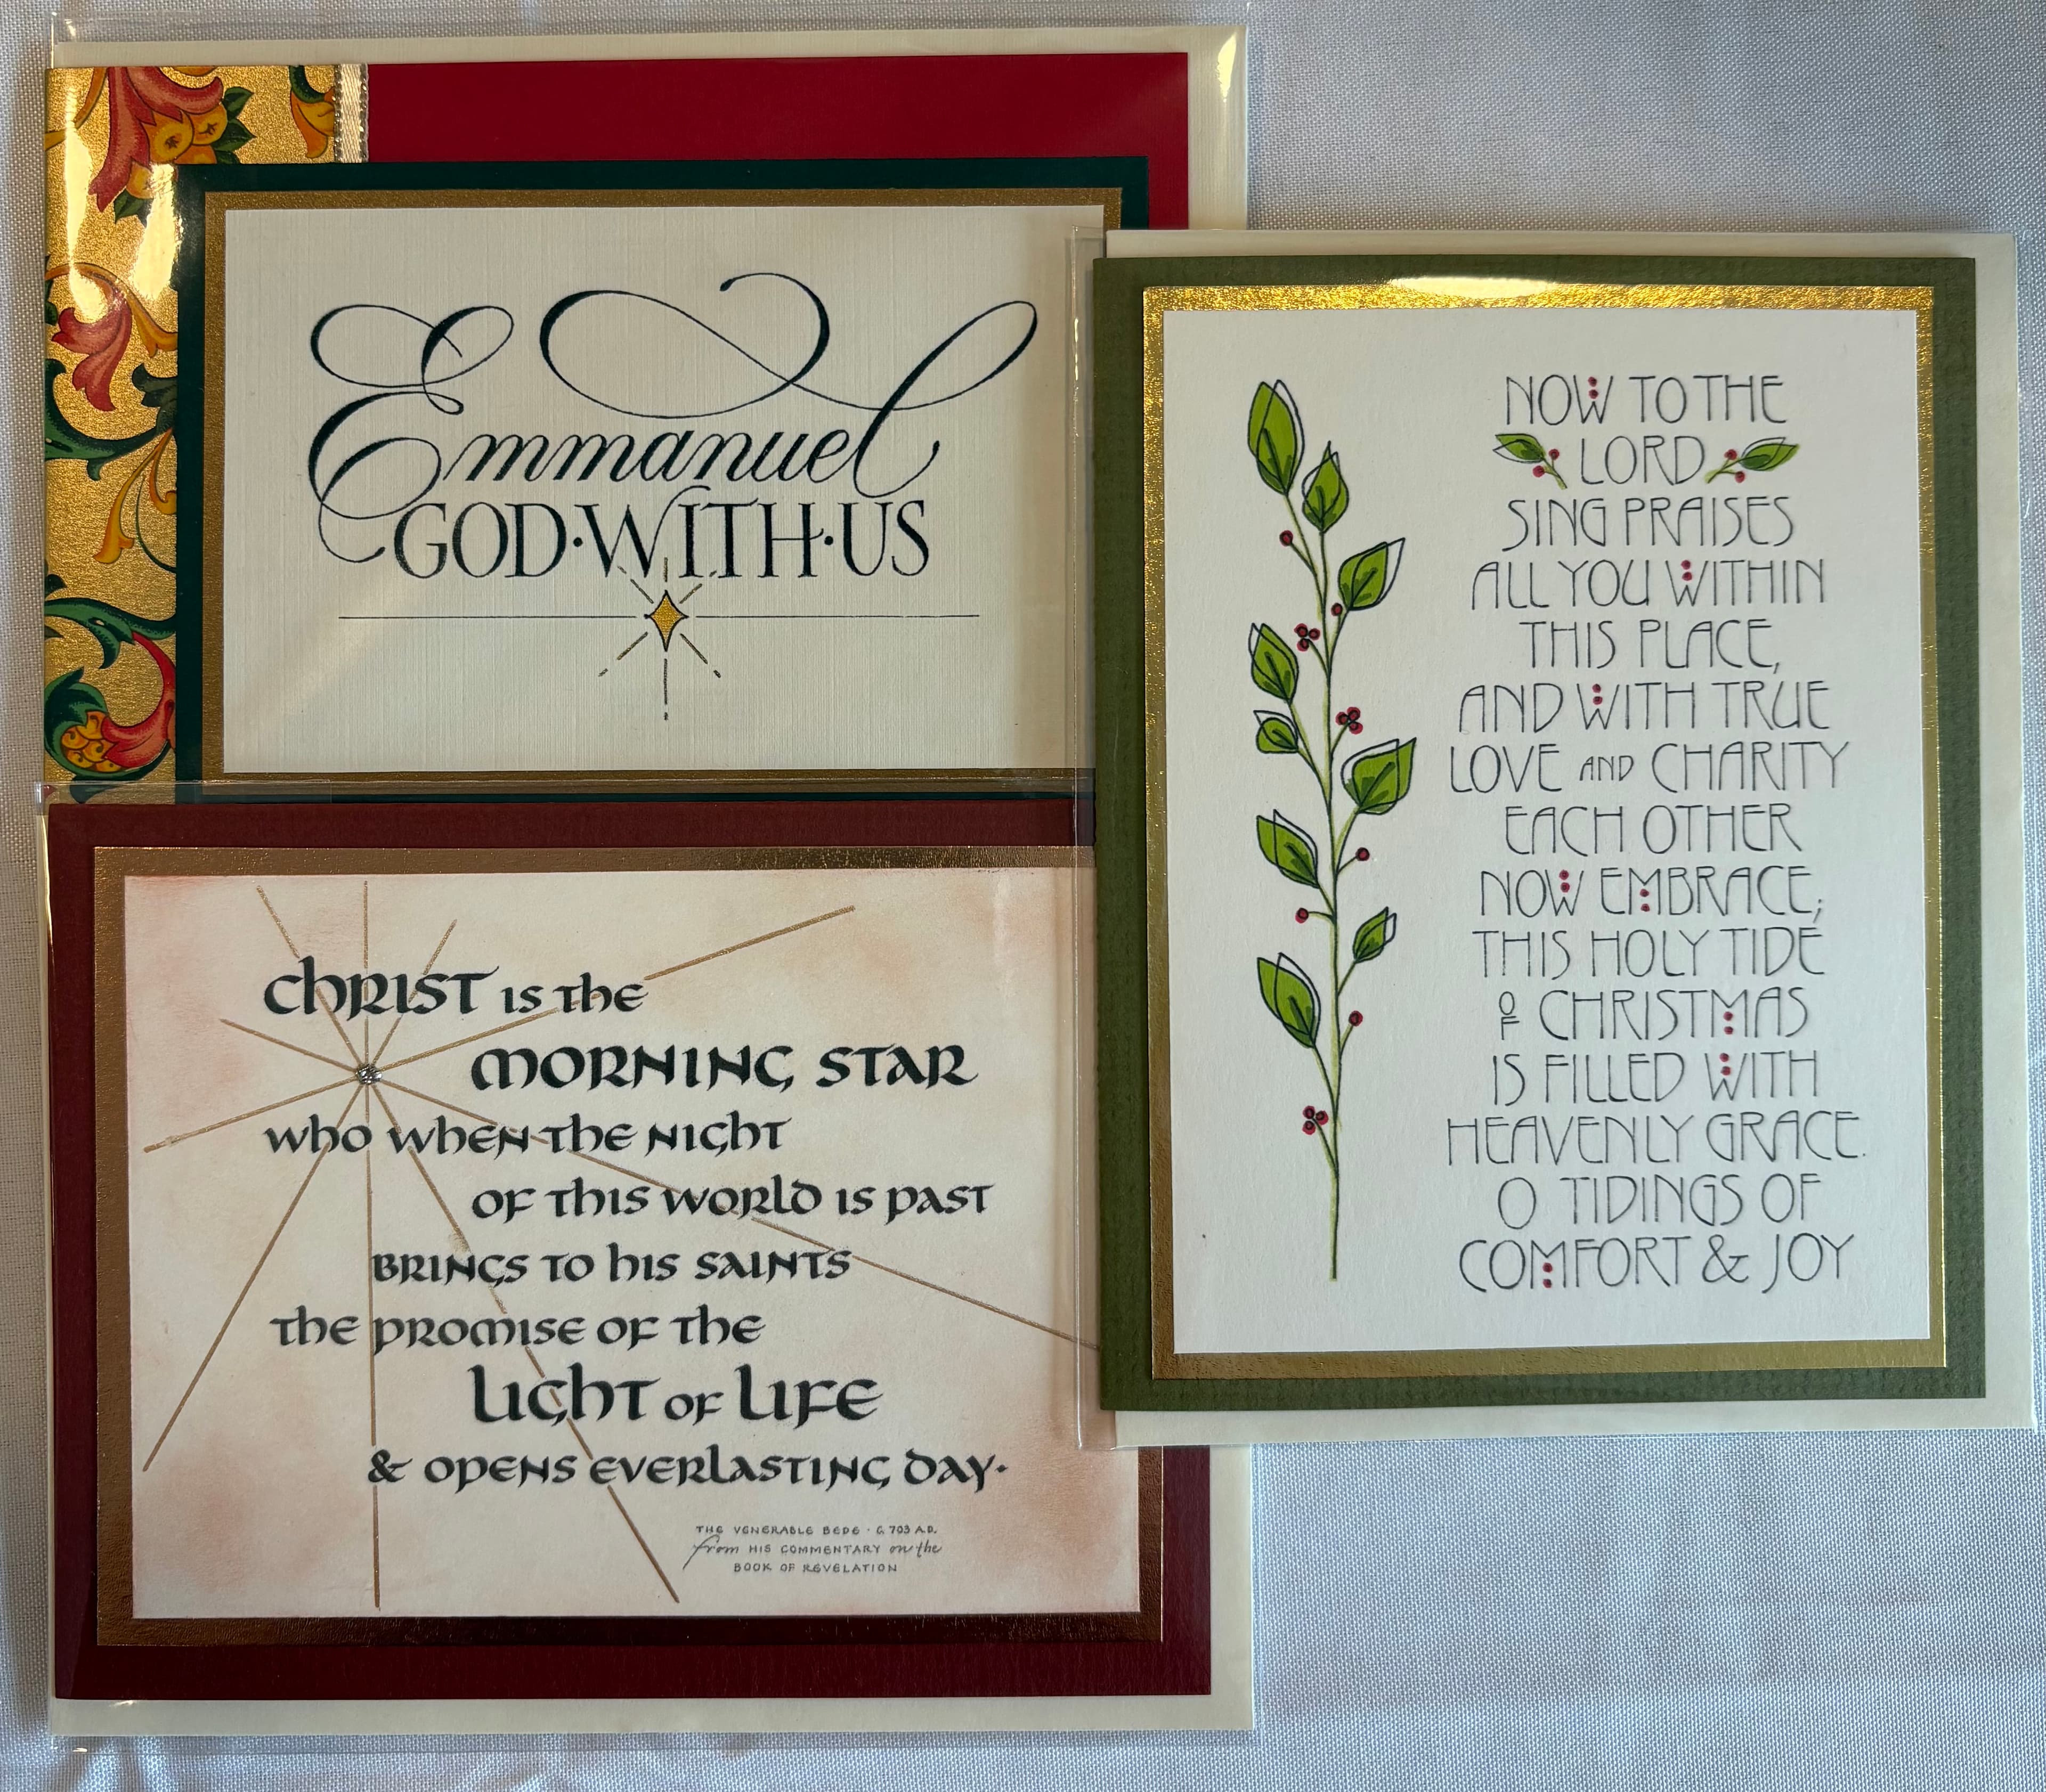 Emmanuel
GOD·WITH·US
CHRIST IS THE
MORNING STAR
WHO WHEN THE NIGHT
OF THIS WORLD IS PAST
BRINGS TO HIS SAINTS
THE PROMISE OF THE
LIGHT OF LIFE
& OPENS EVERLASTING DAY·
THE VENERABLE BEDE · C. 703 A.D.
from HIS COMMENTARY on the
BOOK OF REVELATION
NOW TO THE
LORD
SING PRAISES
ALL YOU WITHIN
THIS PLACE,
AND WITH TRUE
LOVE AND CHARITY
EACH OTHER
NOW EMBRACE;
THIS HOLY TIDE
OF CHRISTMAS
IS FILLED WITH
HEAVENLY GRACE.
O TIDINGS OF
COMFORT & JOY